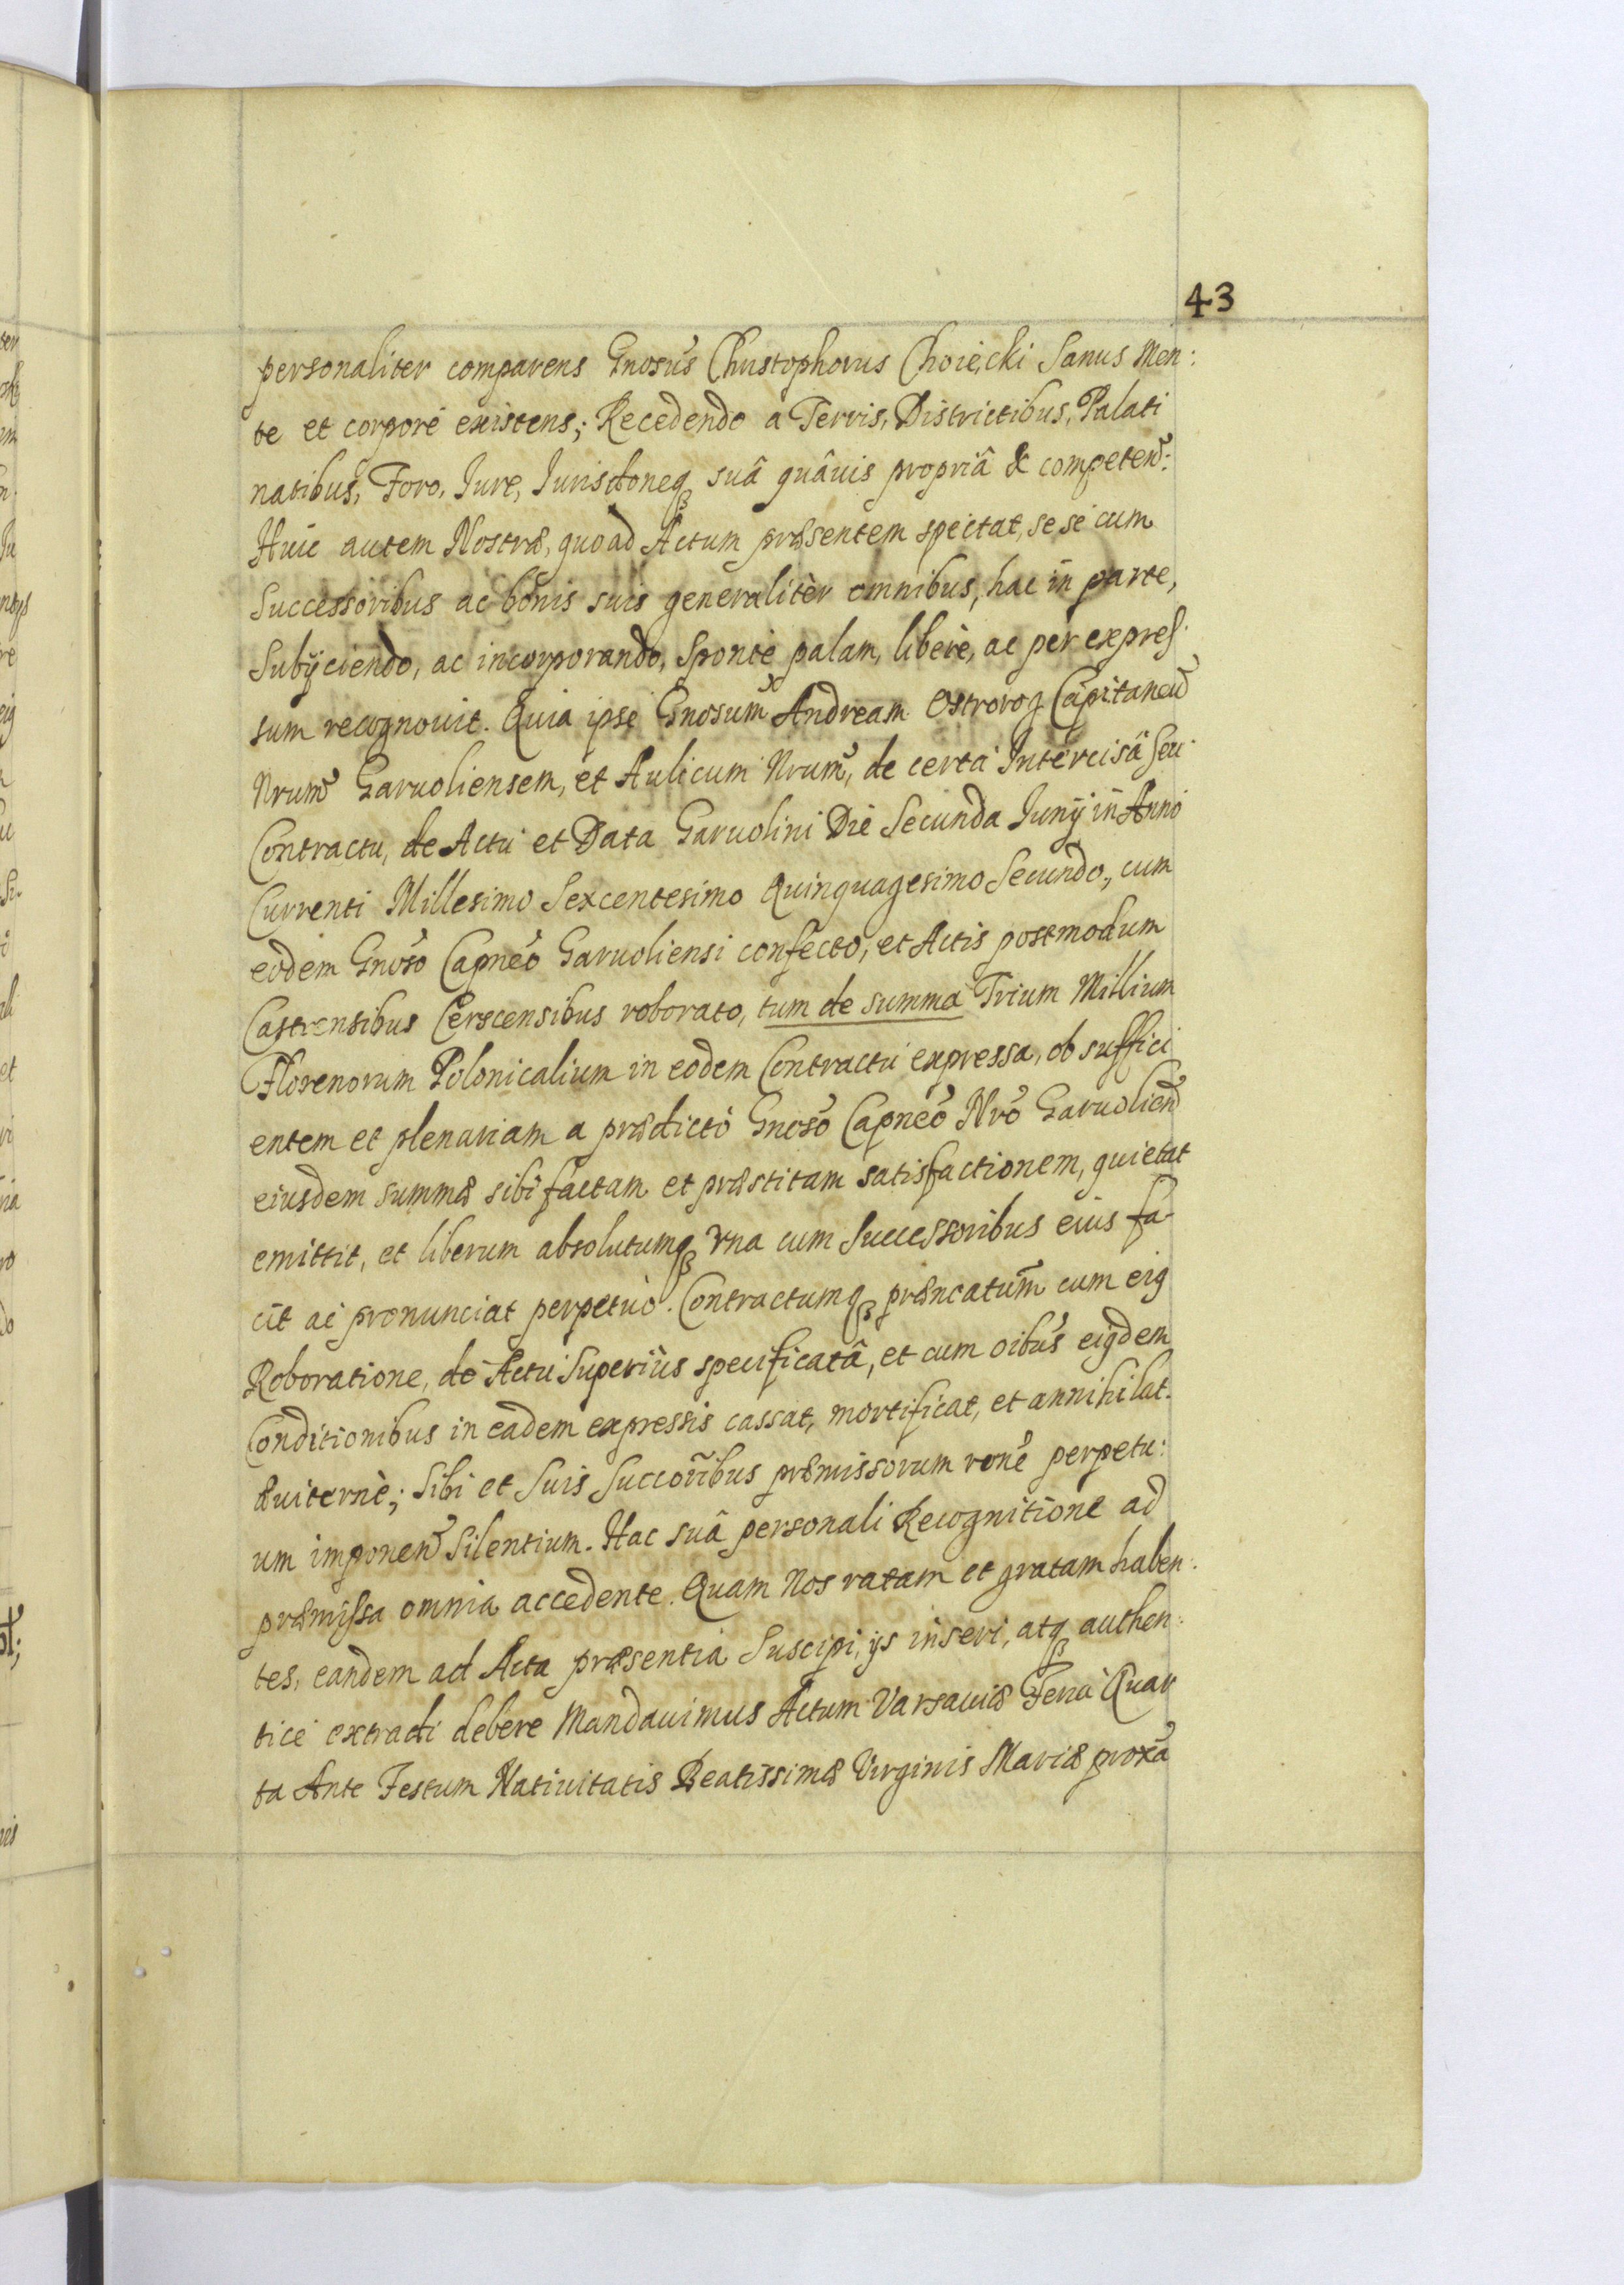 43
personaliter comparens Gnosus Christophorus Choiecki Sanus Men:
te et corpore existens; Recedendo a Terris, Districtibus, Palati
natibus, Foro, Jure, Jurisdoneq suâ quâvis propriâ & competen:
Huic autem Nostræ, quoad Actum præsentem spectat, sese cum
Successoribus ac bonis suis generalitèr omnibus, hac in parte,
Subijciendo, ac incorporando, Sponte palam, liberè, ac per expres
sum recognovit. Quia ipse Gnosum Andream Ostrorog Capitaneu
Nrum Garvoliensem, et Aulicum Nrum, de certa Intercisâ seu
Contractu, de Actu et Data Garvolini Die Secunda Junij in Anno
Currenti Millesimo Sexcentesimo Quinquagesimo Secundo, cum
eodem Gnoso Capneo Garvoliensi confecto, et Actis postmodum
Castrensibus Cerscensibus roborato, tum de summa Trium Millium
Florenorum Polonicalium in eodem Contractu expressa, ob suffici
entem et plenariam a prædicto Gnoso Capneo Nro Garvolien
eiusdem summæ sibi factam et præstitam satisfactionem, quietat
emittit, et liberum absolutumq vna cum Successoribus eius fa
cit ac pronunciat perpetuò. Contractumq præncatum cum eig
Roboratione, de Actu Superiùs specificatâ, et cum oibus eigdem
Conditionibus in eadem expressis cassat, mortificat, et annihilat.
Æuiternè; Sibi et Suis Succoribus præmissorum rone perpetu:
um imponen Silentium. Hac suâ personali Recognitione ad
præmissa omnia accedente. Quam Nos ratam et gratam haben:
tes, eandem ad Acta præsentia Suscipi, ijs inseri, atq authen:
tice extradi debere Mandavimus Actum Varsaviæ Feria Quar
ta Ante Festum Nativitatis Beatissimæ Virginis Mariæ proxa